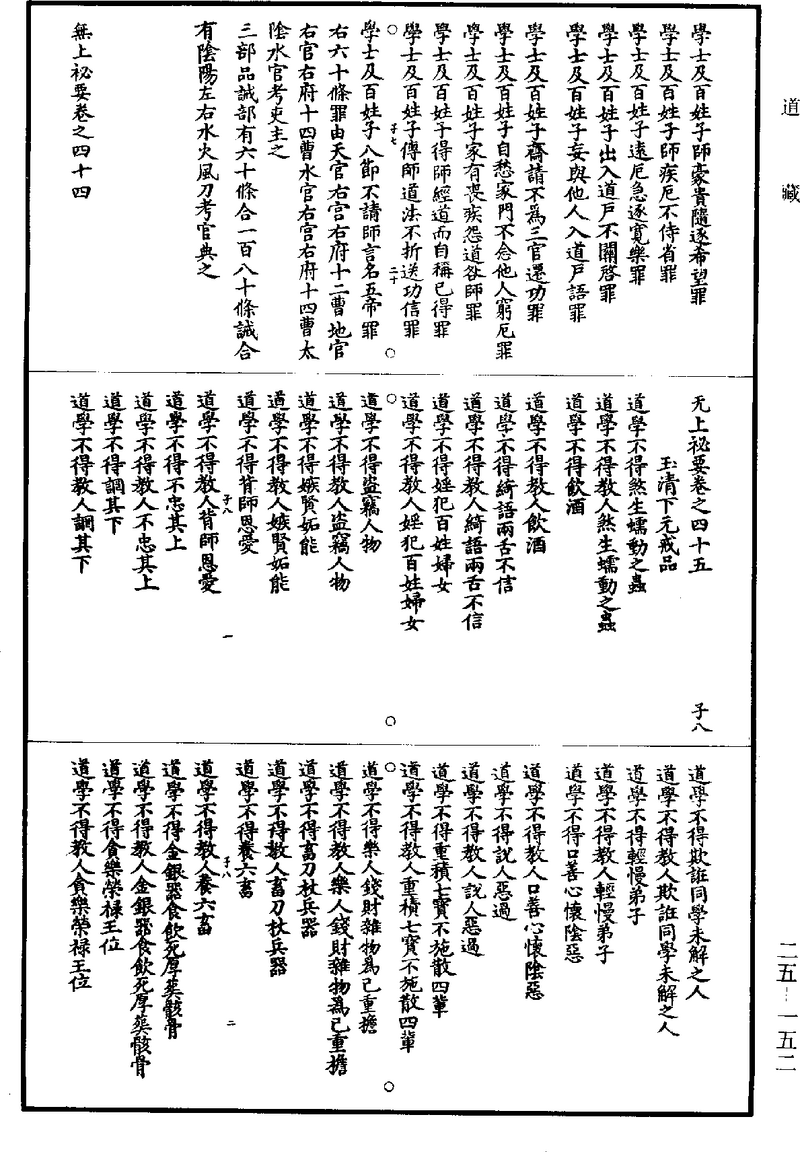 道藏
學士及百姓子師豪貴隨逐希望罪
學士及百姓子師疾厄不侍省罪
學士及百姓子遠厄急逐寬樂罪
學士及百姓子出入道戶不關啓罪
學士及百姓子妄與他人入道戶語罪
學士及百姓子齋請不爲三官還功罪
學士及百姓子自愁家門不念他人窮厄罪
學士及百姓子家有喪疾怨道咎師罪
學士及百姓子得師經道而自稱已得罪
學士及百姓子傳師道法不折送功信罪
子七 二十
學士及百姓子八節不請師言名五帝罪
右六十條罪由天官右宮右府十二曹地官
右官右府十四曹水官右宮右府十四曹太
陰水官考吏主之
三部品誡部有六十條合一百八十條誡合
有陰陽左右水火風刀考官典之
無上祕要卷之四十四
无上祕要卷之四十五
子八
玉清下元戒品
道學不得煞生蠕動之蟲
道學不得教人煞生蠕動之蟲
道學不得飲酒
道學不得教人飲酒
道學不得綺語兩舌不信
道學不得教人綺語兩舌不信
道學不得婬犯百姓婦女
道學不得教人婬犯百姓婦女
道學不得盜竊人物
道學不得教人盜竊人物
道學不得嫉賢妬能
道學不得教人嫉賢妬能
道學不得背師恩愛
子八 一
道學不得教人背師恩愛
道學不得不忠其上
道學不得教人不忠其上
道學不得調其下
道學不得教人調其下
道學不得欺誑同學未解之人
道學不得教人欺誑同學未解之人
道學不得輕慢弟子
道學不得教人輕慢弟子
道學不得口善心懷陰惡
道學不得教人口善心懷陰惡
道學不得說人惡過
道學不得教人說人惡過
道學不得重積七寶不施散四輩
道學不得教人重積七寶不施散四輩
道學不得樂人錢財雜物爲己重擔
道學不得教人樂人錢財雜物爲己重擔
道學不得畜刀杖兵器
道學不得教人畜刀杖兵器
道學不得養六畜
子八 二
道學不得教人養六畜
道學不得金銀器食飲死厚葬骸骨
道學不得教人金銀器食飲死厚葬骸骨
道學不得貪樂榮禄王位
道學不得教人貪樂榮禄王位
二五-一五二